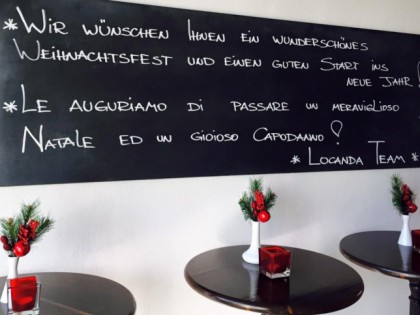 *Wir wünschen Ihnen ein wunderschönes
Weihnachtsfest und einen guten Start ins
neue Jahr!
*Le auguriamo di passare un meraviglioso
Natale ed un gioioso Capodanno!
* Locanda Team *